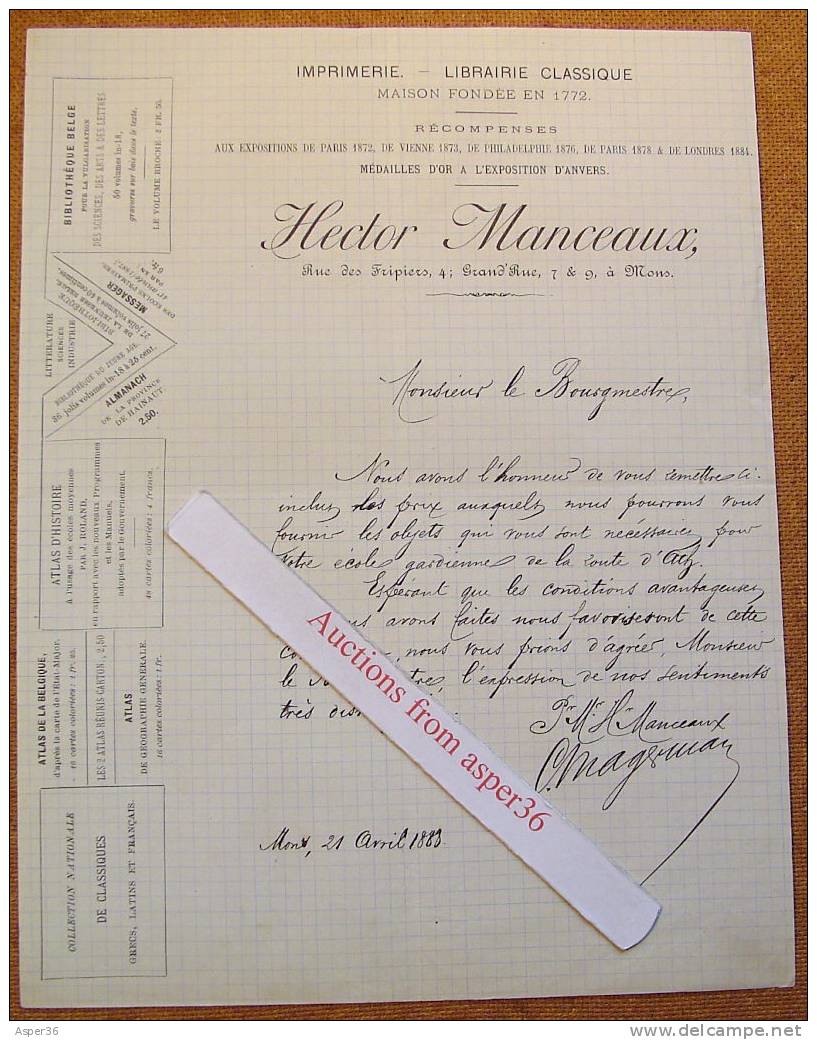 IMPRIMERIE. — LIBRAIRIE CLASSIQUE
MAISON FONDÉE EN 1772.
RÉCOMPENSES
AUX EXPOSITIONS DE PARIS 1872, DE VIENNE 1873, DE PHILADELPHIE 1876, DE PARIS 1878 & DE LONDRES 1884.
MÉDAILLES D'OR A L'EXPOSITION D'ANVERS.
Hector Manceaux,
Rue des Fripiers, 4; Grand'Rue, 7 & 9, à Mons.
BIBLIOTHÈQUE BELGE
POUR LA VULGARISATION
DES SCIENCES, DES ARTS & DES LETTRES
50 volumes in-18,
gravures sur bois dans le texte.
LE VOLUME BROCHÉ: 2 FR. 50.
MESSAGER
DES ÉCOLES PRIMAIRES
PAR AN
6 fr.
LITTÉRATURE
SCIENCES
INDUSTRIE
BIBLIOTHÈQUE
DE LA JEUNESSE BELGE,
27 jolis volumes à 60 centimes.
BIBLIOTHÈQUE DU JEUNE AGE.
36 jolis volumes in-18 à 25 cent.
ALMANACH
DE LA PROVINCE
DE HAINAUT.
2,50.
ATLAS D'HISTOIRE
à l'usage des écoles moyennes
PAR J. ROLAND,
en rapport avec les nouveaux Programmes
et les Manuels.
adoptés par le Gouvernement.
48 cartes coloriées: 4 francs.
ATLAS DE LA BELGIQUE,
d'après la carte de l'Etat-Major.
16 cartes coloriées: 1 Fr. 25.
LES 2 ATLAS RÉUNIS CARTON., 2,50
ATLAS
DE GÉOGRAPHIE GÉNÉRALE.
16 cartes coloriées: 1 Fr.
COLLECTION NATIONALE
DE CLASSIQUES
GRECS, LATINS ET FRANÇAIS.
Monsieur le Bourgmestre,
Nous avons l'honneur de vous remettre ci-
inclus les prix auxquels nous pourrons vous
fournir les objets qui vous sont nécessaires pour
votre école gardienne de la route d'Ath.
Espérant que les conditions avantageuses
avons faites nous favoriseront de cette
nous vous prions d'agréer, Monsieur
le l'expression de nos sentiments
très
Pr Mr Hr Manceaux
C. Magerman
Mons, 21 Avril 1883.
Auctions from asper36
Asper36
www.delcampe.net